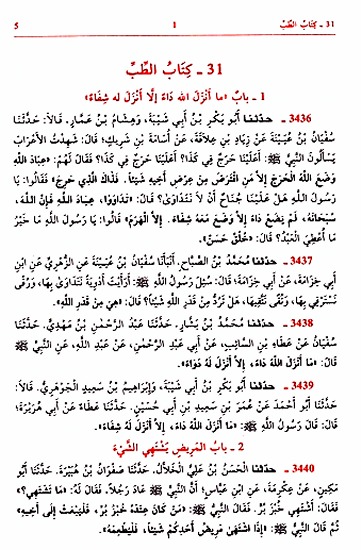 31 ـ كِتَابُ الطِّبِّ 1 5
31 ـ كِتَابُ الطِّبِّ
1 ـ بابُ «ما أَنْزَلَ الله دَاءً إلَّا أَنْزَلَ له شِفَاءً»
3436 ـ حدثنا أَبُو بَكْرِ بْنُ أَبِي شَيْبَةَ، وَهِشَامُ بْنُ عَمَّارٍ. قَالَا: حَدَّثَنَا
سُفْيَانُ بْنُ عُيَيْنَةَ عَنْ زِيَادِ بْنِ عِلَاقَةَ، عَنْ أُسَامَةَ بْنِ شَرِيكٍ؛ قَالَ: شَهِدْتُ الأَعْرَابَ
يَسْأَلُونَ النَّبِيَّ ﷺ: أَعَلَيْنَا حَرَجٌ فِي كَذَا؟ أَعَلَيْنَا حَرَجٌ فِي كَذَا؟ فَقَالَ لَهُمْ: «عِبَادَ اللهِ
وَضَعَ اللهُ الْحَرَجَ إِلَّا مَنِ اقْتَرَضَ مِنْ عِرْضِ أَخِيهِ شَيْئاً. فَذَاكَ الَّذِي حَرِجَ» فَقَالُوا: يَا
رَسُولَ اللهِ هَلْ عَلَيْنَا جُنَاحٌ أَنْ لَا نَتَدَاوَى؟ قَالَ: «تَدَاوَوْا، عِبَادَ اللهِ فَإِنَّ اللهَ،
سُبْحَانَهُ، لَمْ يَضَعْ دَاءً إِلَّا وَضَعَ مَعَهُ شِفَاءً. إِلَّا الْهَرَمَ» قَالُوا: يَا رَسُولَ اللهِ مَا خَيْرُ
مَا أُعْطِيَ الْعَبْدُ؟ قَالَ: «خُلُقٌ حَسَنٌ».
3437 ـ حدثنا مُحَمَّدُ بْنُ الصَّبَّاحِ. أَنْبَأَنَا سُفْيَانُ بْنُ عُيَيْنَةَ عَنِ الزُّهْرِيِّ عَنِ ابْنِ
أَبِي خِزَامَةَ، عَنْ أَبِي خِزَامَةَ؛ قَالَ: سُئِلَ رَسُولُ اللهِ ﷺ: أَرَأَيْتَ أَدْوِيَةً نَتَدَاوَى بِهَا، وَرُقًى
نَسْتَرْقِي بِهَا، وَتُقًى نَتَّقِيهَا، هَلْ تَرُدُّ مِنْ قَدَرِ اللهِ شَيْئاً؟ قَالَ: «هِيَ مِنْ قَدَرِ اللهِ».
3438 ـ حدثنا مُحَمَّدُ بْنُ بَشَّارٍ. حَدَّثَنَا عَبْدُ الرَّحْمٰنِ بْنُ مَهْدِيٍّ. حَدَّثَنَا
سُفْيَانُ عَنْ عَطَاءِ بْنِ السَّائِبِ، عَنْ أَبِي عَبْدِ الرَّحْمٰنِ، عَنْ عَبْدِ اللهِ، عَنِ النَّبِيِّ ﷺ
قَالَ: «مَا أَنْزَلَ اللهُ دَاءً، إِلَّا أَنْزَلَ لَهُ دَوَاءً».
3439 ـ حدثنا أَبُو بَكْرِ بْنُ أَبِي شَيْبَةَ، وَإِبْرَاهِيمُ بْنُ سَعِيدٍ الْجَوْهَرِيُّ. قَالَا:
حَدَّثَنَا أَبُو أَحْمَدَ عَنْ عُمَرَ بْنِ سَعِيدِ بْنِ أَبِي حُسَيْنٍ. حَدَّثَنَا عَطَاءٌ عَنْ أَبِي هُرَيْرَةَ؛
قَالَ: قَالَ رَسُولُ اللهِ ﷺ: «مَا أَنْزَلَ اللهُ دَاءً، إِلَّا أَنْزَلَ لَهُ شِفَاءً».
2 ـ بابُ المَرِيضِ يَشْتَهِي الشَّيْءَ
3440 ـ حدثنا الْحَسَنُ بْنُ عَلِيٍّ الْخَلَّالُ. حَدَّثَنَا صَفْوَانُ بْنُ هُبَيْرَةَ. حَدَّثَنَا أَبُو
مَكِينٍ، عَنْ عِكْرِمَةَ، عَنِ ابْنِ عَبَّاسٍ؛ أَنَّ النَّبِيَّ ﷺ عَادَ رَجُلاً. فَقَالَ لَهُ: «مَا تَشْتَهِي؟»
فَقَالَ: أَشْتَهِي خُبْزَ بُرٍّ. فَقَالَ النَّبِيُّ ﷺ: «مَنْ كَانَ عِنْدَهُ خُبْزُ بُرٍّ، فَلْيَبْعَثْ إِلَى أَخِيهِ»
ثُمَّ قَالَ النَّبِيُّ ﷺ: «إِذَا اشْتَهَى مَرِيضُ أَحَدِكُمْ شَيْئاً، فَلْيُطْعِمْهُ».